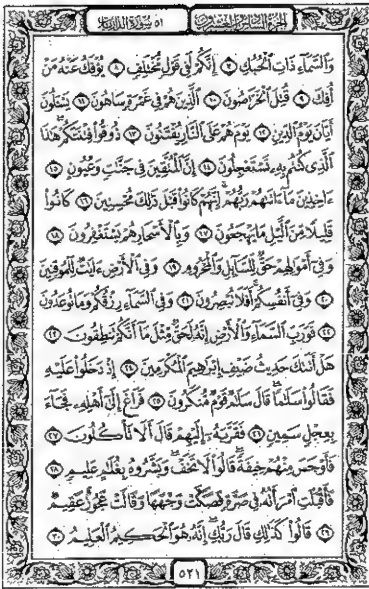 الجزء السادس والعشرون ٥١ سورة الذاريات
وَالسَّمَاءِ ذَاتِ الْحُبُكِ ٧ إِنَّكُمْ لَفِي قَوْلٍ مُخْتَلِفٍ ٨ يُؤْفَكُ عَنْهُ مَنْ
أُفِكَ ٩ قُتِلَ الْخَرَّاصُونَ ١٠ الَّذِينَ هُمْ فِي غَمْرَةٍ سَاهُونَ ١١ يَسْـَٔلُونَ
أَيَّانَ يَوْمُ الدِّينِ ١٢ يَوْمَ هُمْ عَلَى النَّارِ يُفْتَنُونَ ١٣ ذُوقُوا فِتْنَتَكُمْ هَٰذَا
الَّذِي كُنْتُمْ بِهِ تَسْتَعْجِلُونَ ١٤ إِنَّ الْمُتَّقِينَ فِي جَنَّٰتٍ وَعُيُونٍ ١٥
ءَاخِذِينَ مَا ءَاتَىٰهُمْ رَبُّهُمْ إِنَّهُمْ كَانُوا قَبْلَ ذَٰلِكَ مُحْسِنِينَ ١٦ كَانُوا
قَلِيلًا مِنَ الَّيْلِ مَا يَهْجَعُونَ ١٧ وَبِالْأَسْحَارِ هُمْ يَسْتَغْفِرُونَ ١٨
وَفِي أَمْوَٰلِهِمْ حَقٌّ لِلسَّائِلِ وَالْمَحْرُومِ ١٩ وَفِي الْأَرْضِ ءَايَٰتٌ لِلْمُوقِنِينَ
٢٠ وَفِي أَنْفُسِكُمْ أَفَلَا تُبْصِرُونَ ٢١ وَفِي السَّمَاءِ رِزْقُكُمْ وَمَا تُوعَدُونَ
٢٢ فَوَرَبِّ السَّمَاءِ وَالْأَرْضِ إِنَّهُ لَحَقٌّ مِثْلَ مَا أَنَّكُمْ تَنْطِقُونَ ٢٣
هَلْ أَتَىٰكَ حَدِيثُ ضَيْفِ إِبْرَٰهِيمَ الْمُكْرَمِينَ ٢٤ إِذْ دَخَلُوا عَلَيْهِ
فَقَالُوا سَلَٰمًا قَالَ سَلَٰمٌ قَوْمٌ مُنْكَرُونَ ٢٥ فَرَاغَ إِلَىٰ أَهْلِهِ فَجَاءَ
بِعِجْلٍ سَمِينٍ ٢٦ فَقَرَّبَهُ إِلَيْهِمْ قَالَ أَلَا تَأْكُلُونَ ٢٧
فَأَوْجَسَ مِنْهُمْ خِيفَةً قَالُوا لَا تَخَفْ وَبَشَّرُوهُ بِغُلَٰمٍ عَلِيمٍ ٢٨
فَأَقْبَلَتِ امْرَأَتُهُ فِي صَرَّةٍ فَصَكَّتْ وَجْهَهَا وَقَالَتْ عَجُوزٌ عَقِيمٌ
٢٩ قَالُوا كَذَٰلِكِ قَالَ رَبُّكِ إِنَّهُ هُوَ الْحَكِيمُ الْعَلِيمُ ٣٠
٥٢١